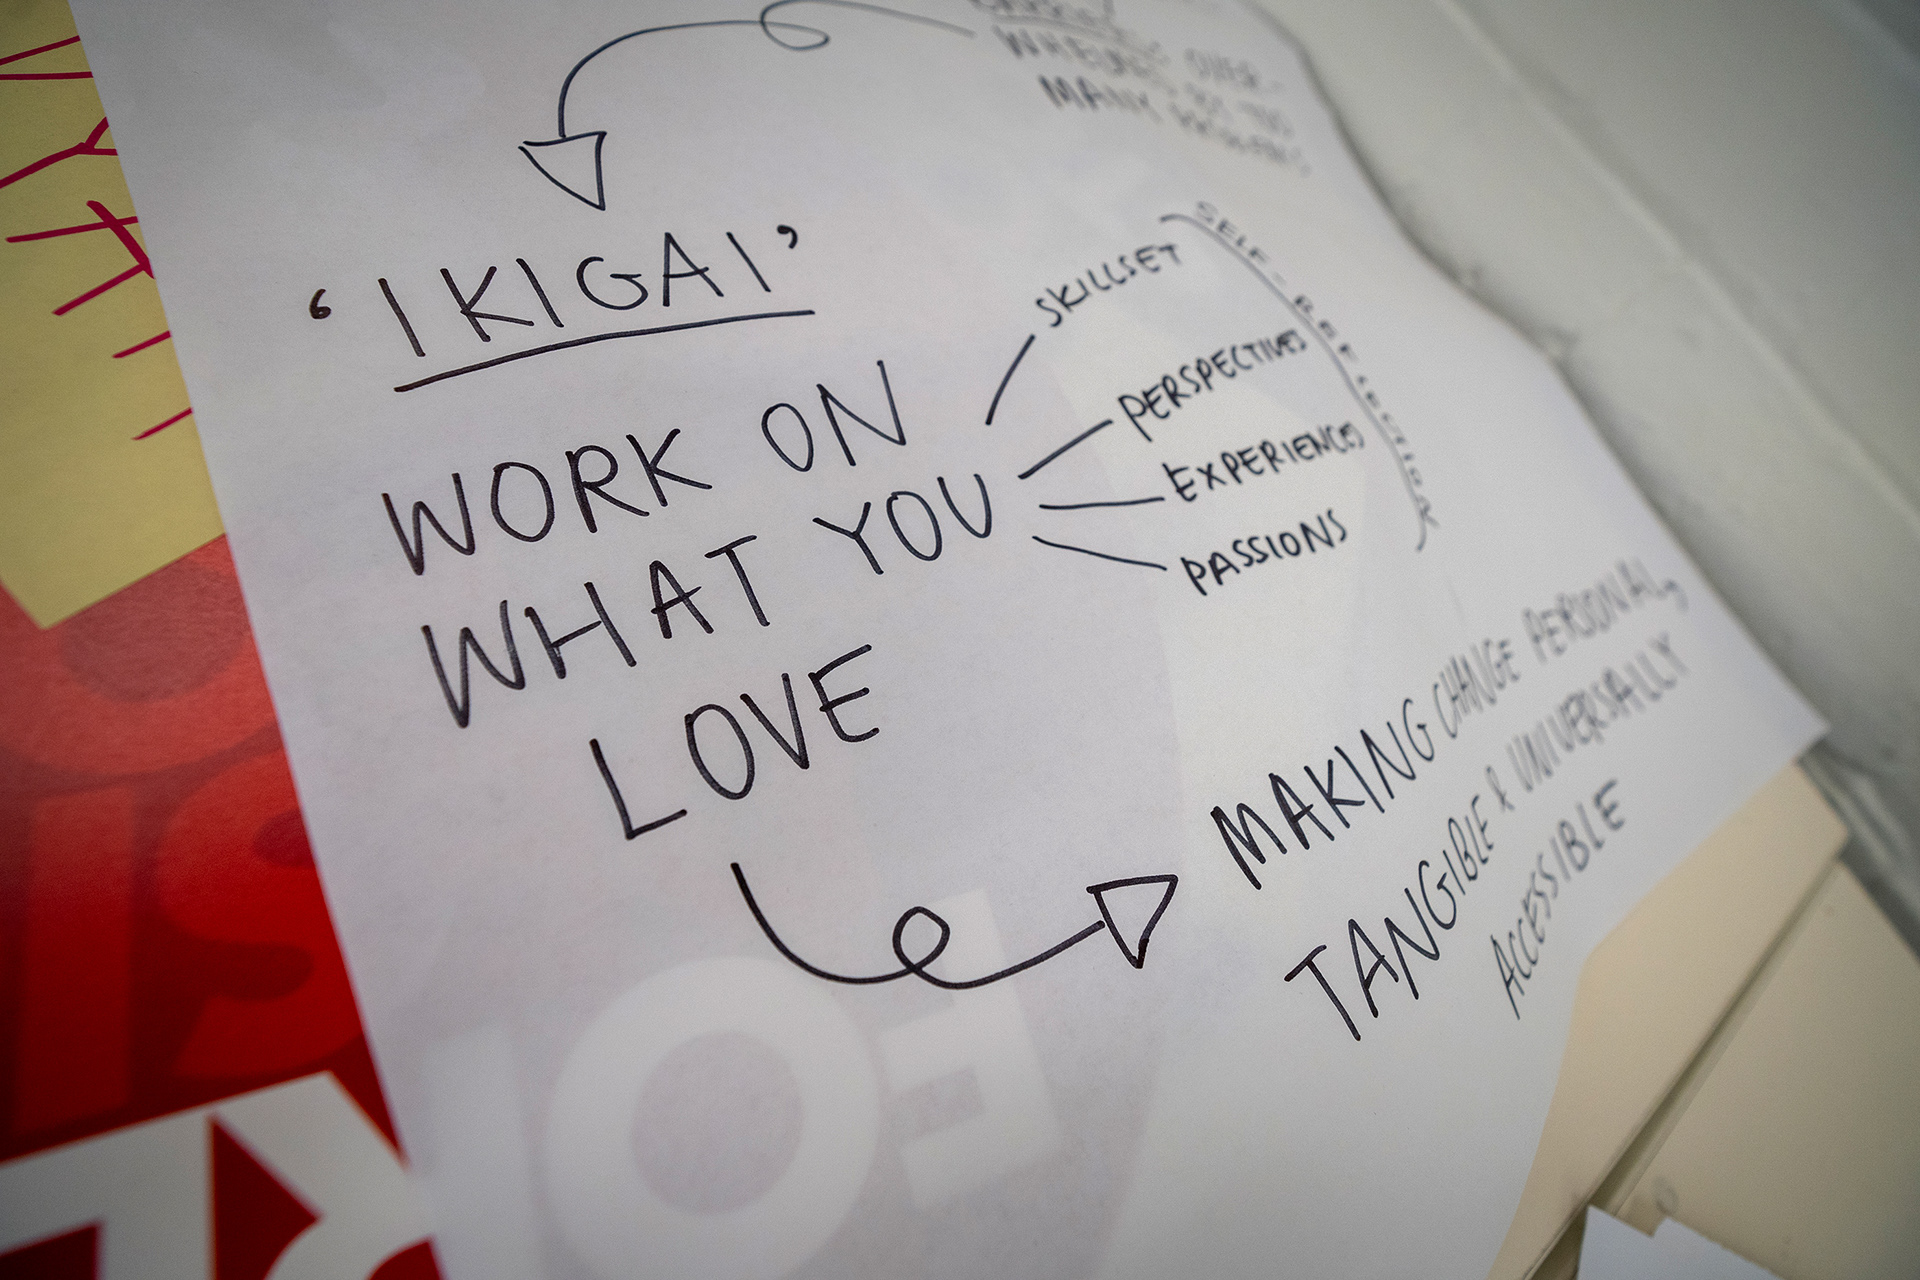 MANY
'IKIGAI'
WORK ON
WHAT YOU
LOVE
SKILLSET
PERSPECTIVES
EXPERIENCES
PASSIONS
SELF-REFLECTION
MAKING CHANGE PERSONAL,
TANGIBLE & UNIVERSALLY
ACCESSIBLE